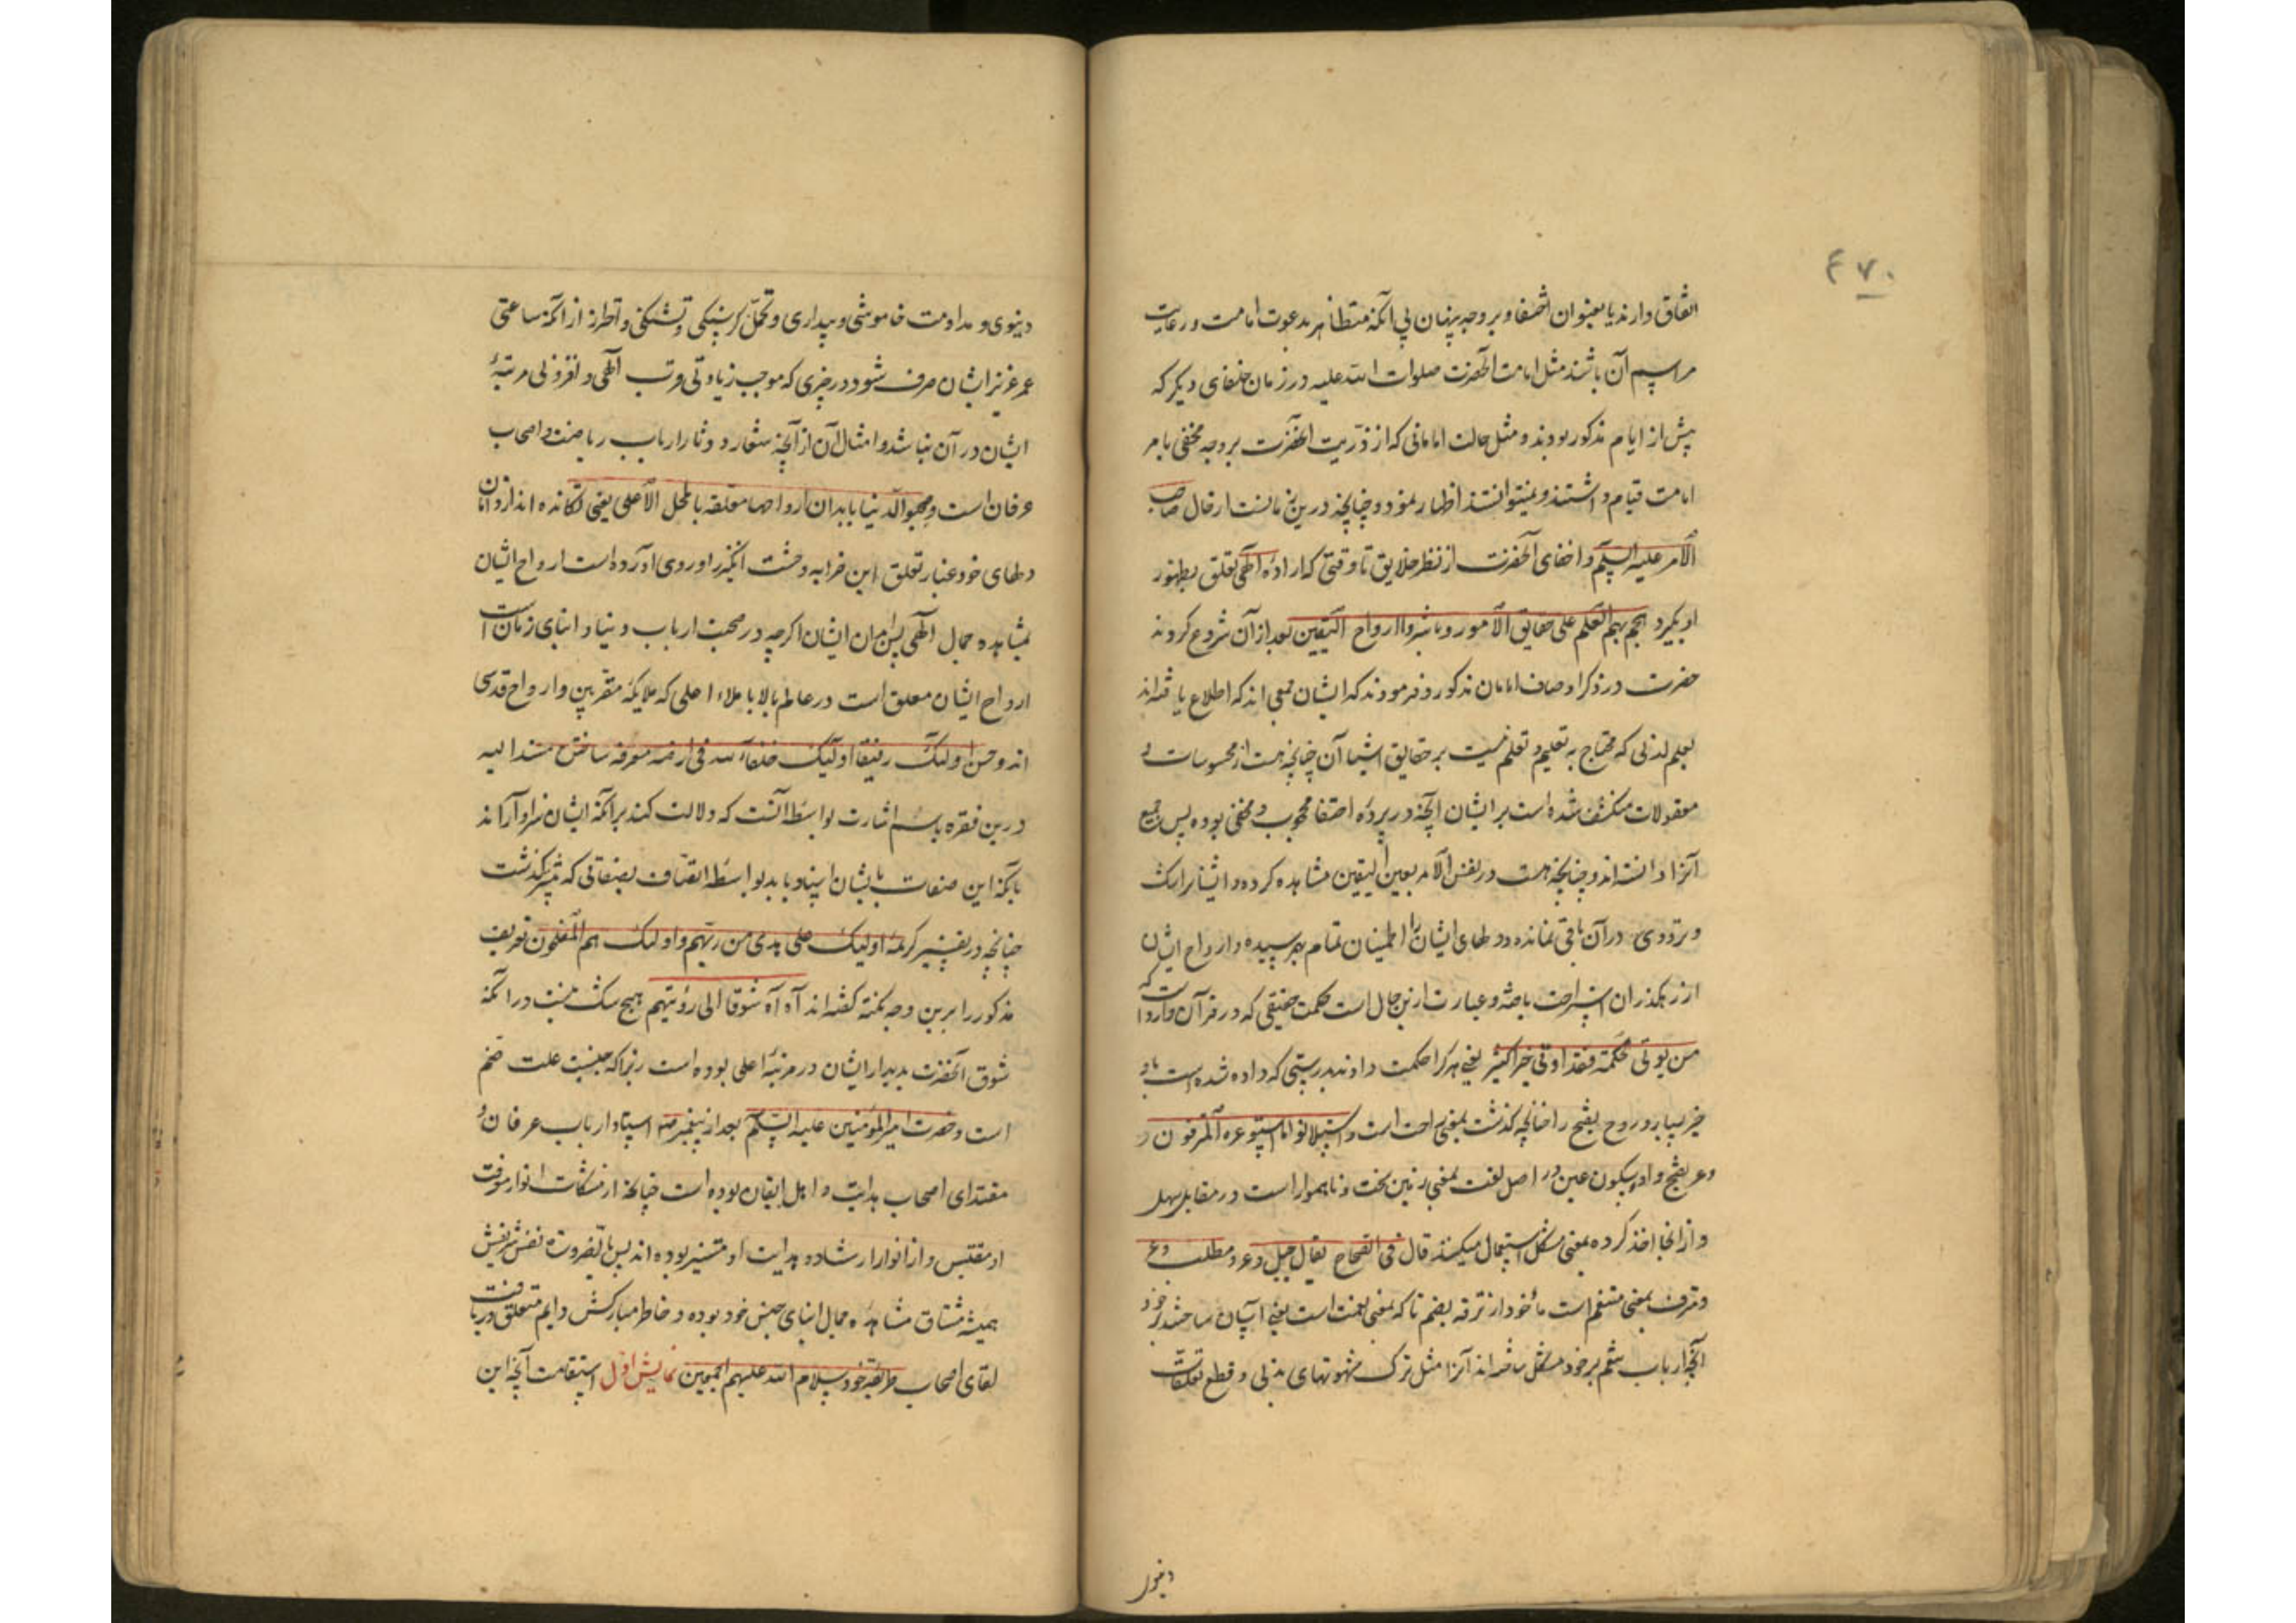 ۴۷۰
اتفاق دارند یا بعنوان اختفا و بر وجه پنهان بی آنکه متظاهر بدعوت امامت و رعایت
مراسم آن باشند مثل امامت آنحضرت صلوات الله علیه در زمان خلفای دیگر که
پیش از ایام مذکور بودند و مثل حالت امامانی که از ذریت آنحضرت بر وجه مخفی بامر
امامت قیام داشتند و نمیتوانستند اظهار نمود و چنانچه درین زمانست از حال صاحب
الأمر علیه السلم و اخفای آنحضرت از نظر خلایق تا وقتی که اراده الهی تعلق بظهور
او بگیرد هجم بهم العلم علی حقایق الأمور و باشروا ارواح الیقین بعد از آن شروع کردند
حضرت در ذکر اوصاف امامان مذکور و فرمودند که ایشان جمعی اند که اطلاع یافته اند
بعلم لدنی که محتاج به تعلیم و تعلم نیست بر حقایق اشیا آن چنانچه هست از محسوسات و
معقولات منکشف شده است بر ایشان آنچه در پرده اختفا محجوب و مخفی بوده پس جمیع
آنرا دانسته اند و چنانچه هست در نفس الأمر بعین الیقین مشاهده کرده و ایشانرا شک
و ترددی در آن باقی نمانده و دلهای ایشان را اطمینان تمام بهم رسیده و ارواح ایشان
ازرهگذر آن استراحت یافته و عبارت ازین حال است حکمت حقیقی که در قرآن وارد است که
من یوتی حکمة فقد اوتی خیرا کثیر یعنی هر کرا حکمت دادند بدرستی که داده شده است باو
خیر بسیار و روح بفتح را چنانچه گذشت بمعنی راحت است و استلانوا ما استوعره المترفون و
وعر بفتح واو و سکون عین در اصل لغت بمعنی زمین سخت و ناهموار است در مقابل سهل
و از انجا اخذ کرده بمعنی مشکل استعمال میکنند قال فی الصحاح یقال جبل وعر و مطلب وعر
و مترف بمعنی متنعم است مأخوذ از ترفه بضم تا که بمعنی نعمت است یعنی آسان ساختند بر خود
آنچه ارباب تنعم بر خود مشکل ساخته اند آنرا مثل ترک شهوتهای بدنی و قطع تعلقات
دنیوی
دنیوی و مداومت خاموشی و بیداری و تحمل گرسنگی و تشنگی و احتراز از آنکه ساعتی
عمر عزیز ایشان صرف شود در چیزی که موجب زیادتی قرب الهی و افزونی مرتبهٔ
ایشان در آن نباشد و امثال آن از آنچه شعار و دثار ارباب ریاضت و اصحاب
عرفان است وصحبوا الدنیا بابدان ارواحها معلقة بالمحل الأعلی یعنی
دلهای خود غبار تعلق این خرابه وحشت انگیز را و روی آورده است ارواح ایشان
بمشاهده جمال الهی پس ابدان ایشان اگرچه در صحبت ارباب دنیا و ابنای زمان است
ارواح ایشان معلق است در عالم بالا با ملاء اعلی که ملایکه مقربین و ارواح قدسی
اند وحسن اولئک رفیقا اولئک خلفآء الله فی ارضه معرفه ساختن مسند الیه
درین فقره باسم اشارت بواسطه آنست که دلالت کند بر آنکه ایشان سزاوارند
بآنکه این صفات بایشان اسناد یابد بواسطه اتصاف بصفاتی که پیشتر گذشت
چنانچه در تفسیر کریمه اولئک علی هدی من ربهم واولئک هم المفلحون تعریف
مذکور را برین وجه نکته گفته اند آه آه شوقا الی رؤیتهم هیچ شک نیست در آنکه
شوق آنحضرت بدیدار ایشان در مرتبه اعلی بوده است زیرا که جنسیت علت ضم
است و حضرت امیر المؤمنین علیه السلم بعد از پیغمبر صه استاد ارباب عرفان و
مقتدای اصحاب هدایت و اهل ایقان بوده است چنانچه از مشکات انوار معرفت
او مقتبس و از انوار ارشاد و هدایت او مستنیر بوده اند پس بالضروره نفس شریفش
همیشه مشتاق مشاهده جمال ابنای جنس خود بوده و خاطر مبارکش دایم متعلق دریافت
لقای اصحاب طریقه خود سلام الله علیهم اجمعین نمایش اول استقامت آنچه این